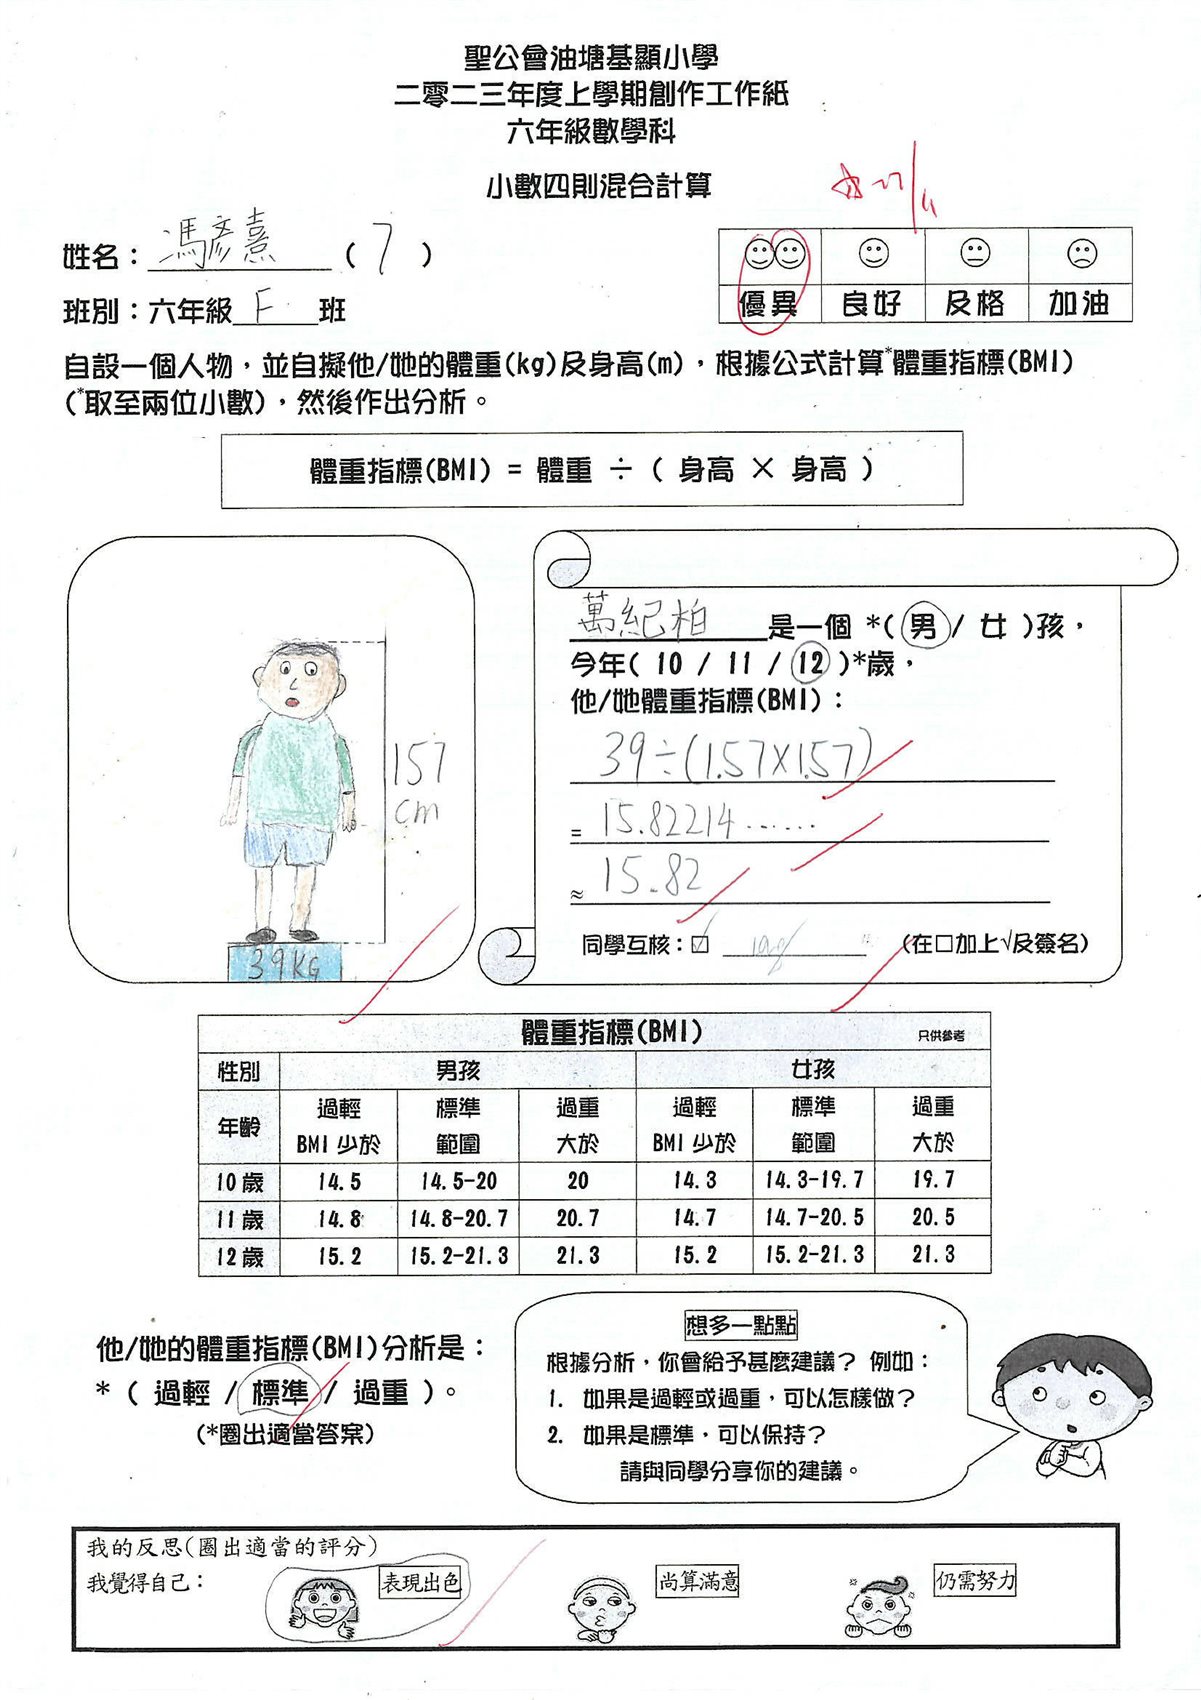 聖公會油塘基顯小學
二零二三年度上學期創作工作紙
六年級數學科
小數四則混合計算
姓名：馮彥熹（7）
班別：六年級 F 班
優異 良好 及格 加油
自設一個人物，並自擬他/她的體重(kg)及身高(m)，根據公式計算*體重指標(BMI)
(*取至兩位小數)，然後作出分析。
體重指標(BMI) = 體重 ÷ ( 身高 × 身高 )
157
cm
39KG
萬紀柏是一個 *( 男 / 女 )孩，
今年( 10 / 11 / 12 )*歲，
他/她體重指標(BMI)：
39÷(1.57×1.57)
= 15.82214……
≈ 15.82
同學互核：☑ (在□加上√及簽名)
體重指標(BMI) 只供參考
性別 男孩 女孩
年齡 過輕 BMI 少於 標準 範圍 過重 大於 過輕 BMI 少於 標準 範圍 過重 大於
10 歲 14.5 14.5-20 20 14.3 14.3-19.7 19.7
11 歲 14.8 14.8-20.7 20.7 14.7 14.7-20.5 20.5
12 歲 15.2 15.2-21.3 21.3 15.2 15.2-21.3 21.3
他/她的體重指標(BMI)分析是：
* ( 過輕 / 標準 / 過重 )。
(*圈出適當答案)
想多一點點
根據分析，你會給予甚麼建議？ 例如：
1. 如果是過輕或過重，可以怎樣做？
2. 如果是標準，可以保持？
請與同學分享你的建議。
我的反思(圈出適當的評分)
我覺得自己： 表現出色 尚算滿意 仍需努力